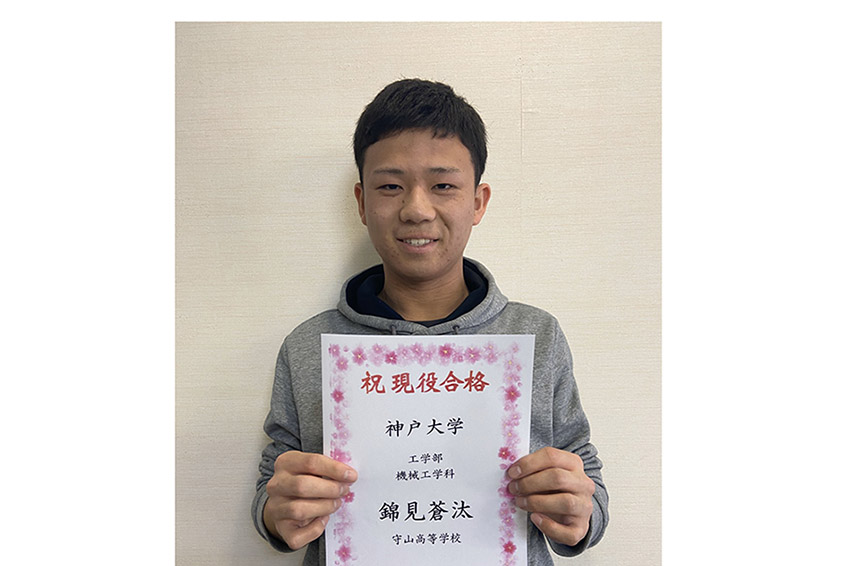 祝 現役合格
神戸大学
工学部
機械工学科
錦見蒼汰
守山高等学校